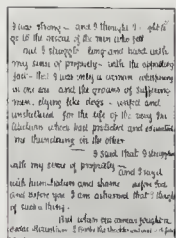 I was strong - and I thought I
go to the rescue of the men who fell
But I struggled long and hard with
my sense of propriety - with the appalling
fact - that I was only a woman whispering
in one ear and the groans of suffering
men dying like dogs - unfed and
unsheltered for the life of the very
institution which had protected and educated
me thundering in the other
I said that I struggled
with my sense of propriety
and I say it
with humiliation and shame before God
and before you I am ashamed that I thought
of such a thing.
But when our armies fought